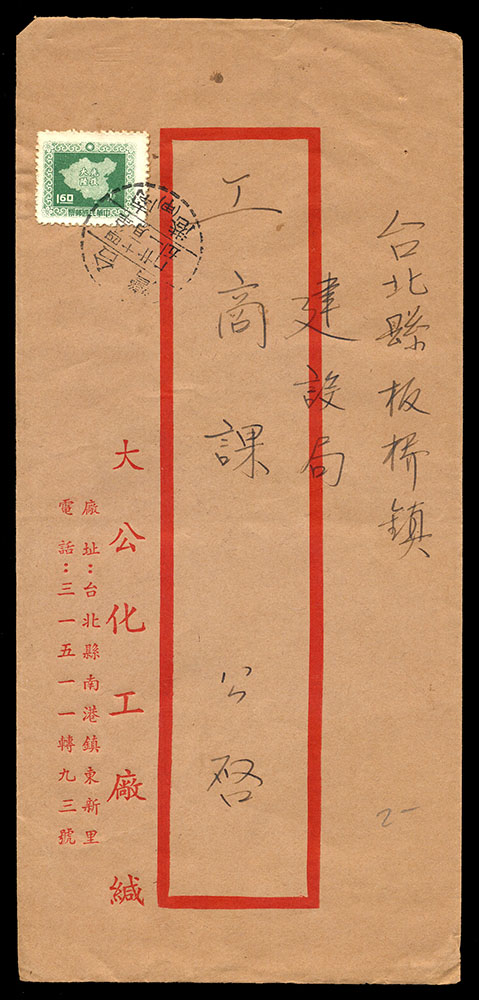 台北縣板橋鎮
建設局
工商課 公啓
大公化工廠緘
廠址：台北縣南港鎮東新里
電話：三一五一一轉九三號
160
中華民國郵票